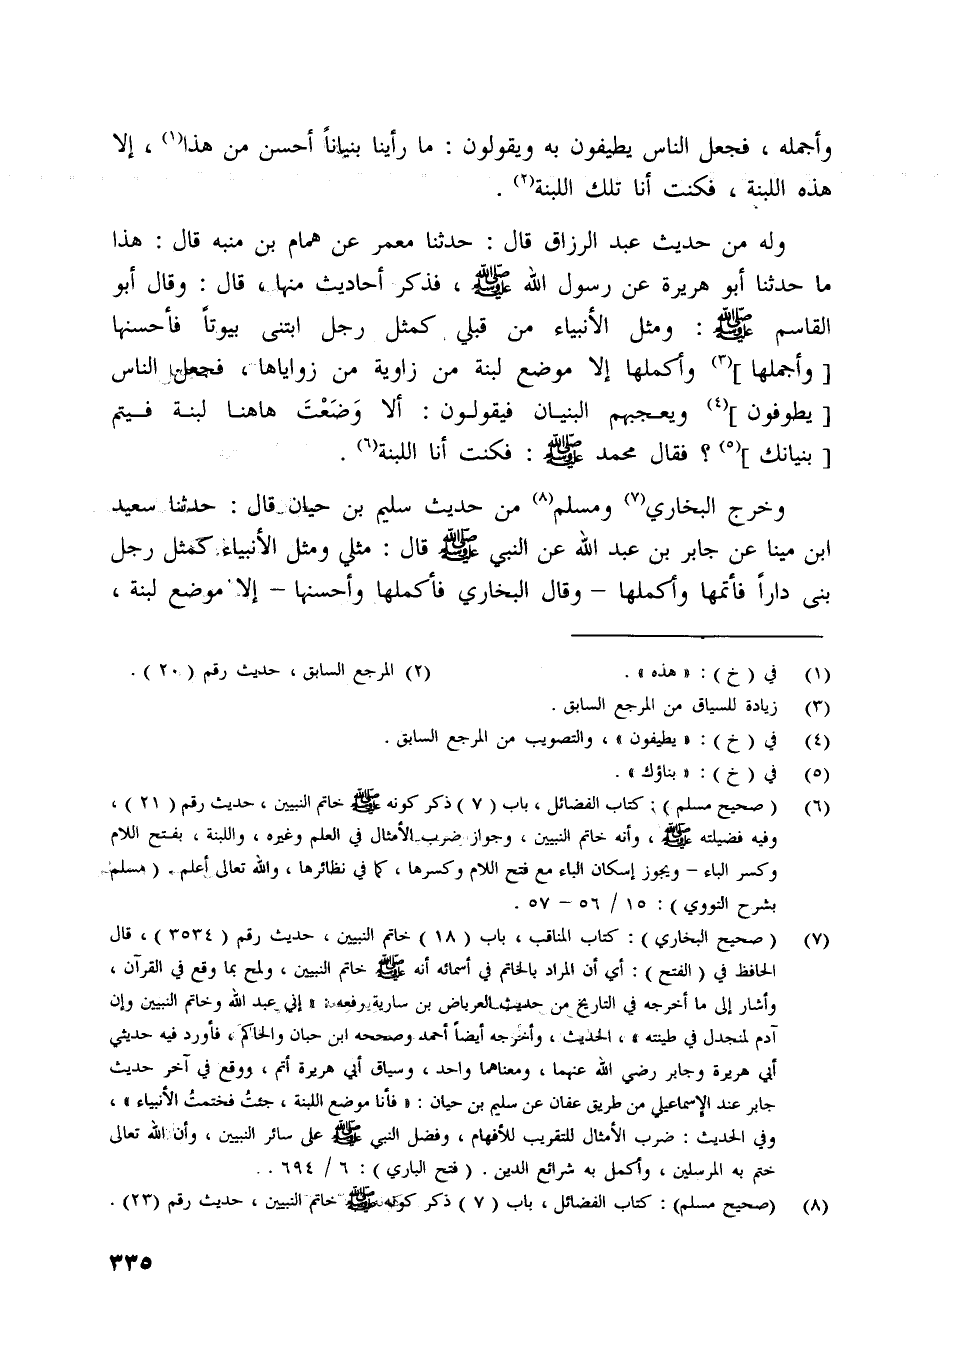 وأجمله ، فجعل الناس يطيفون به ويقولون : ما رأينا بنياناً أحسن من هذا(١) ، إلا
هذه اللبنة ، فكنت أنا تلك اللبنة(٢) .
وله من حديث عبد الرزاق قال : حدثنا معمر عن همام بن منبه قال : هذا
ما حدثنا أبو هريرة عن رسول الله ﷺ ، فذكر أحاديث منها ، قال : وقال أبو
القاسم ﷺ : ومثل الأنبياء من قبلي كمثل رجل ابتنى بيوتاً فأحسنها
[ وأجملها ](٣) وأكملها إلا موضع لبنة من زاوية من زواياها ، فجعل الناس
[ يطوفون ](٤) ويعجبهم البنيان فيقولون : ألا وَضَعْتَ هاهنا لبنة فيتم
[ بنيانك ](٥) ؟ فقال محمد ﷺ : فكنت أنا اللبنة(٦) .
وخرج البخاري(٧) ومسلم(٨) من حديث سليم بن حيان قال : حدثنا سعيد
ابن مينا عن جابر بن عبد الله عن النبي ﷺ قال : مثلي ومثل الأنبياء كمثل رجل
بنى داراً فأتمها وأكملها – وقال البخاري فأكملها وأحسنها – إلا موضع لبنة ،
(١) في ( خ ) : « هذه » . (٢) المرجع السابق ، حديث رقم ( ٢٠ ) .
(٣) زيادة للسياق من المرجع السابق .
(٤) في ( خ ) : « يطيفون » ، والتصويب من المرجع السابق .
(٥) في ( خ ) : « بناؤك » .
(٦) ( صحيح مسلم ) : كتاب الفضائل ، باب ( ٧ ) ذكر كونه ﷺ خاتم النبيين ، حديث رقم ( ٢١ ) ،
وفيه فضيلته ﷺ ، وأنه خاتم النبيين ، وجواز ضرب الأمثال في العلم وغيره ، واللبنة ، بفتح اللام
وكسر الباء – ويجوز إسكان الباء مع فتح اللام وكسرها ، كما في نظائرها ، والله تعالى أعلم . ( مسلم
بشرح النووي ) : ١٥ / ٥٦ – ٥٧ .
(٧) ( صحيح البخاري ) : كتاب المناقب ، باب ( ١٨ ) خاتم النبيين ، حديث رقم ( ٣٥٣٤ ) ، قال
الحافظ في ( الفتح ) : أي أن المراد بالخاتم في أسمائه أنه ﷺ خاتم النبيين ، ولمح بما وقع في القرآن ،
وأشار إلى ما أخرجه في التاريخ من حديث العرباض بن سارية رفعه : « إني عبد الله وخاتم النبيين وإن
آدم لمنجدل في طينته » ، الحديث ، وأخرجه أيضاً أحمد وصححه ابن حبان والحاكم ، فأورد فيه حديثي
أبي هريرة وجابر رضي الله عنهما ، ومعناهما واحد ، وسياق أبي هريرة أتم ، ووقع في آخر حديث
جابر عند الإسماعيلي من طريق عفان عن سليم بن حيان : « فأنا موضع اللبنة ، جئتُ فختمتُ الأنبياء » ،
وفي الحديث : ضرب الأمثال للتقريب للأفهام ، وفضل النبي ﷺ على سائر النبيين ، وأن الله تعالى
ختم به المرسلين ، وأكمل به شرائع الدين . ( فتح الباري ) : ٦ / ٦٩٤ . .
(٨) (صحيح مسلم) : كتاب الفضائل ، باب ( ٧ ) ذكر كونه ﷺ خاتم النبيين ، حديث رقم (٢٣) .
٣٣٥